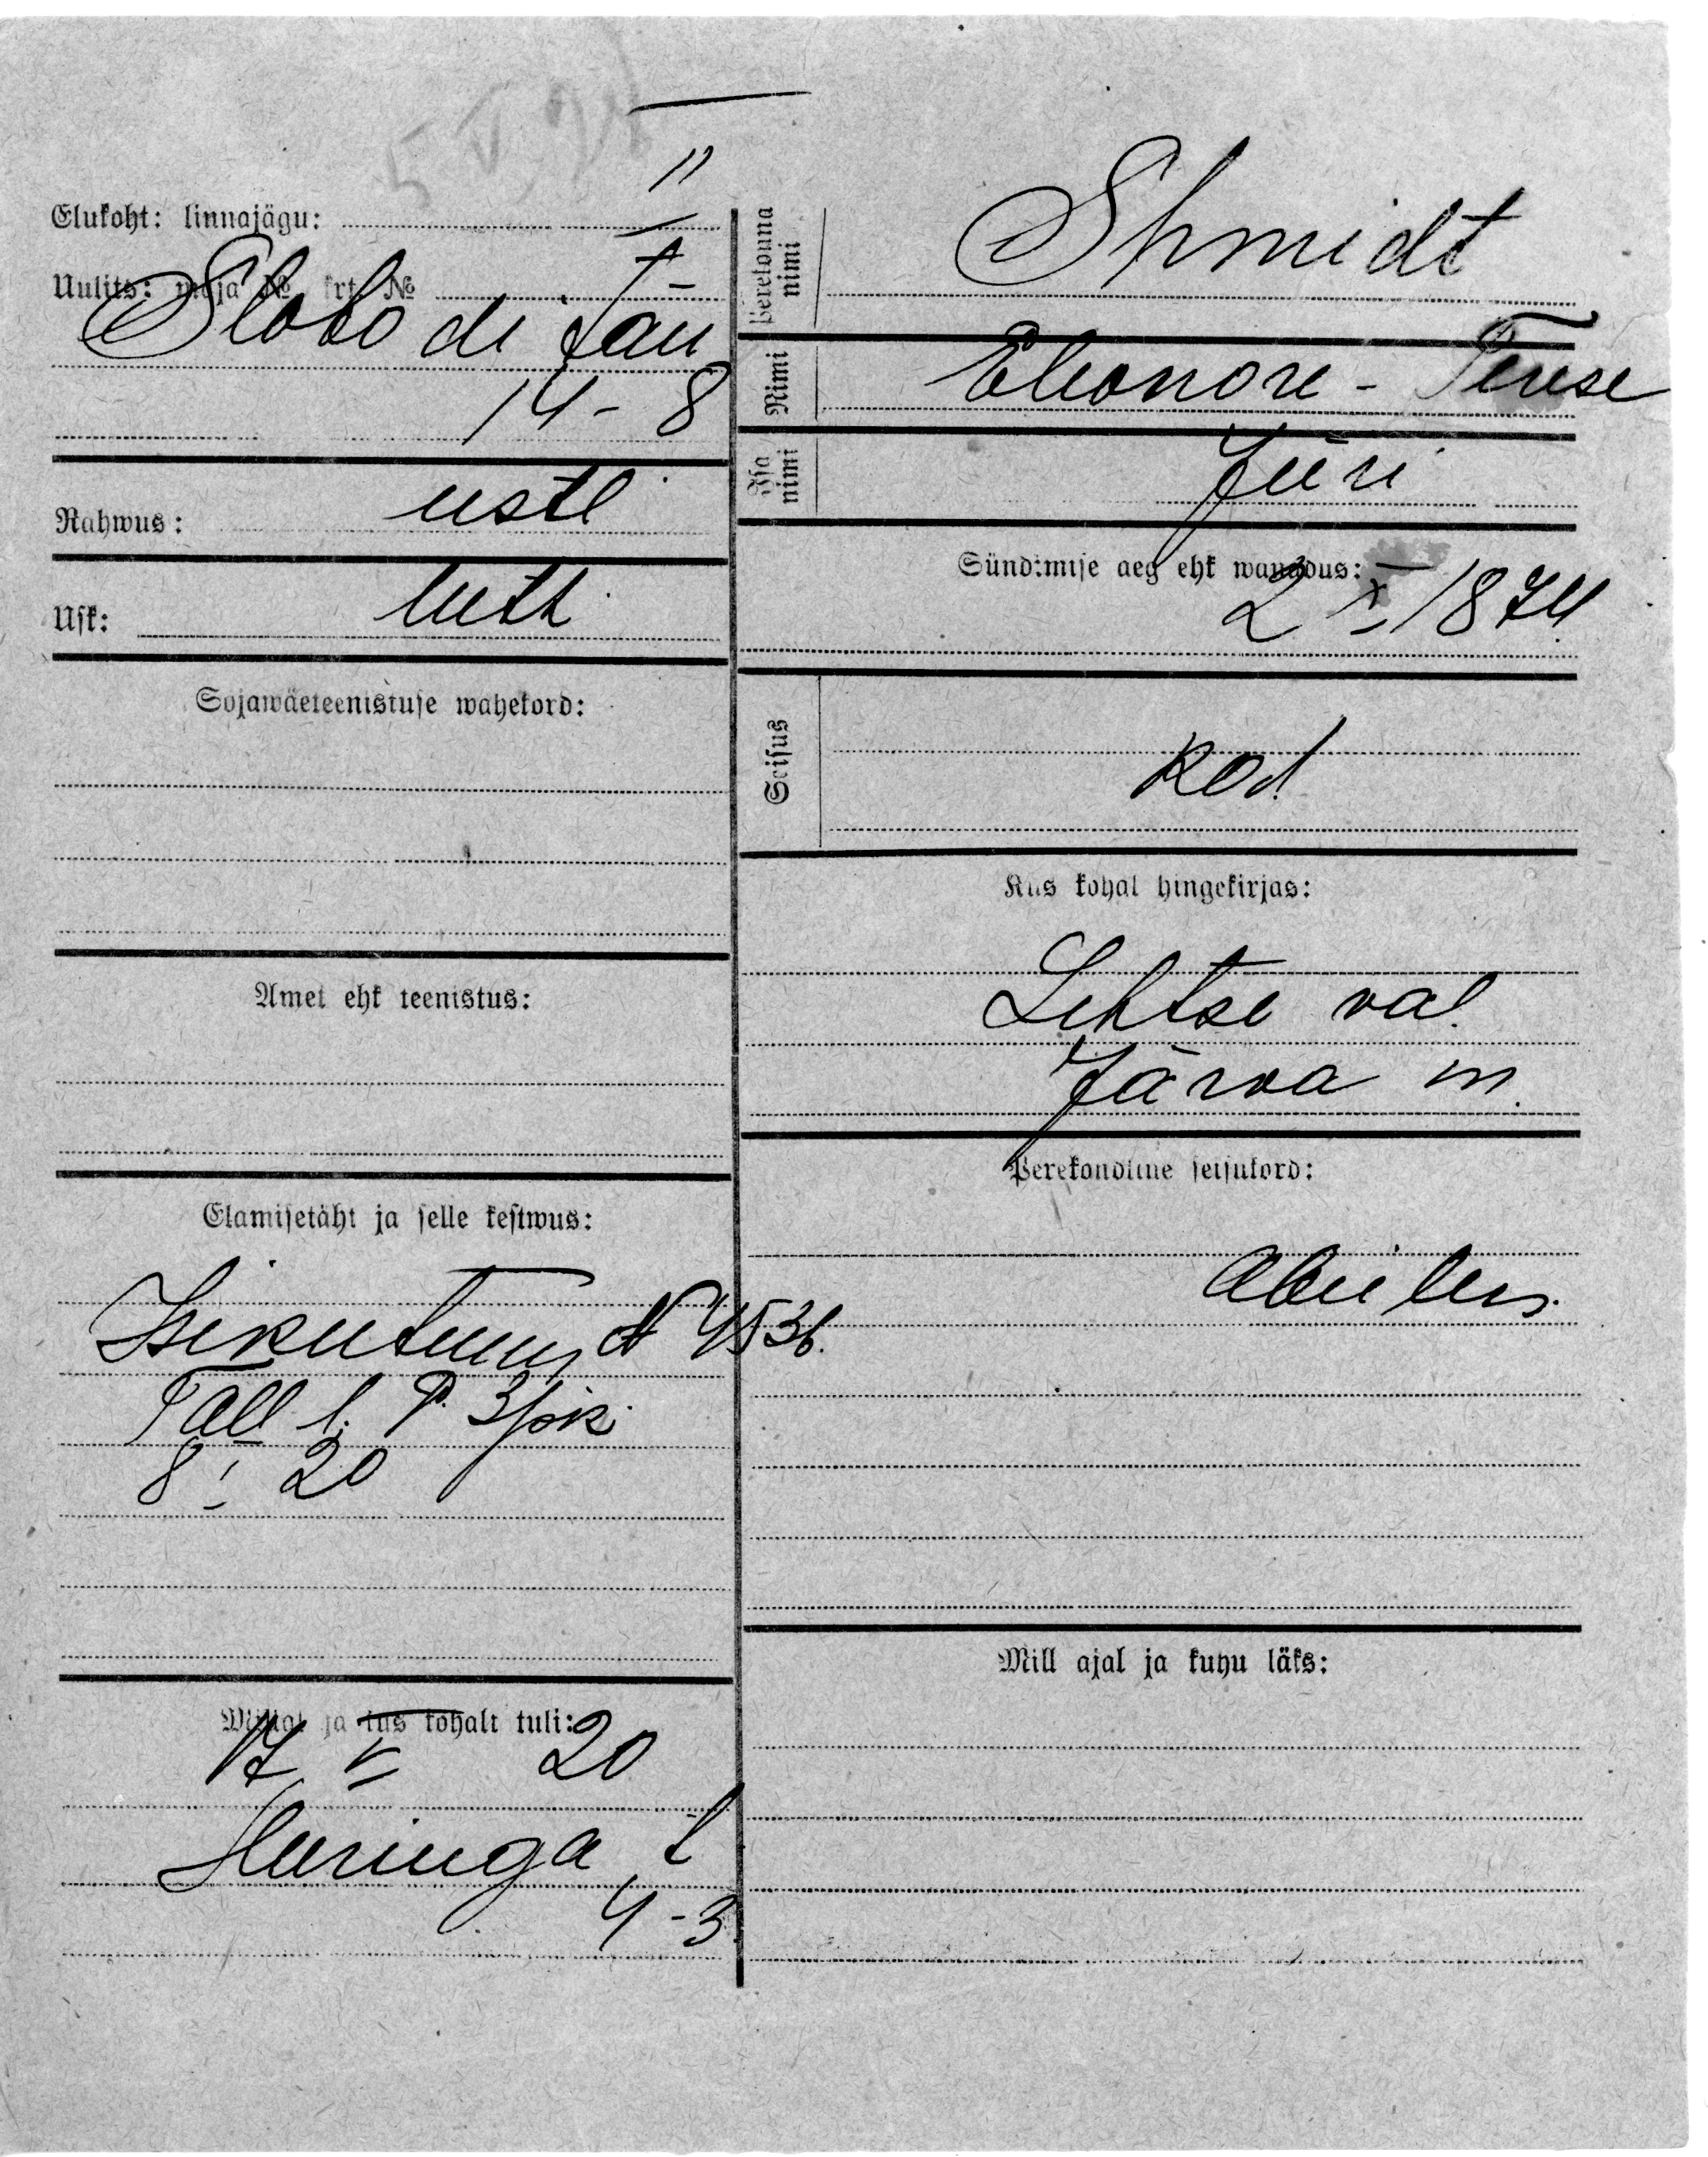 5 V
Elukoht: linnajägu: II
Uulits: maja № krt. №
Slobodi tän
14-8
Rahwus: eestl
Usk: luth.
Sõjawäeteenistuse wahekord:
Amet ehk teenistus:
Elamisetäht ja selle kestwus:
Isikutunn N 4536.
Tall. l. P. 3 jsk.
8 I 20
Millal ja kus kohalt tuli:
17 V 20
Haringa t
4-3.
Perekonna nimi
Shmidt
Nimi
Eleonore - Terese
Isa nimi
Jüri
Sündimise aeg ehk wanadus:
2 X 1874
Seisus
kod.
Kus kohal hingekirjas:
Lehtse val.
Järva m.
Perekondline seisukord:
abielus.
Mill ajal ja kuhu läks: